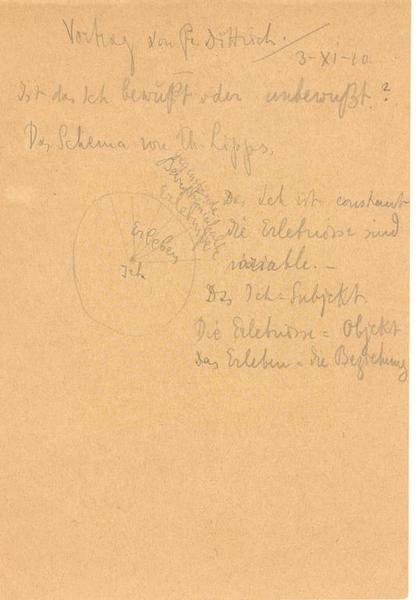 Vortrag von Pr. Dittrich.
3-XI-10
Ist das Ich bewußt oder unbewußt?
Das Schema von Th. Lipps.
Erlebnisse
Erleben
Ich
Das Ich ist constant
die Erlebnisse sind
variable. –
Das Ich = Subjekt
Die Erlebnisse = Objekt
das Erleben = die Beziehung